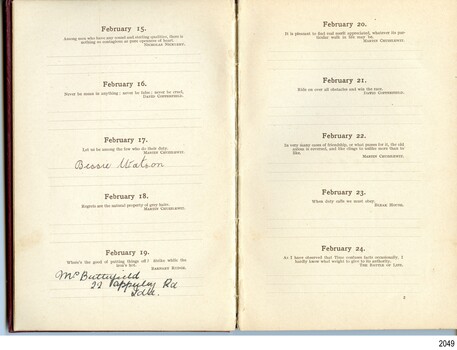 February 15.
Among men who have any sound and sterling qualities, there is
nothing so contagious as pure openness of heart.
NICHOLAS NICKLEBY.
February 16.
Never be mean in anything; never be false; never be cruel.
DAVID COPPERFIELD.
February 17.
Let us be among the few who do their duty.
MARTIN CHUZZLEWIT.
Bessie Watson
February 18.
Regrets are the natural property of grey hairs.
MARTIN CHUZZLEWIT.
February 19.
Where's the good of putting things off? Strike while the
iron's hot.
BARNABY RUDGE.
Mc Butterfield
22 Rd
February 20.
It is pleasant to find real merit appreciated, whatever its par-
ticular walk in life may be.
MARTIN CHUZZLEWIT.
February 21.
Ride on over all obstacles and win the race.
DAVID COPPERFIELD.
February 22.
In very many cases of friendship, or what passes for it, the old
axiom is reversed, and like clings to unlike more than to
like.
MARTIN CHUZZLEWIT.
February 23.
When duty calls we must obey.
BLEAK HOUSE.
February 24.
As I have observed that Time confuses facts occasionally, I
hardly know what weight to give to its authority.
THE BATTLE OF LIFE.
2049